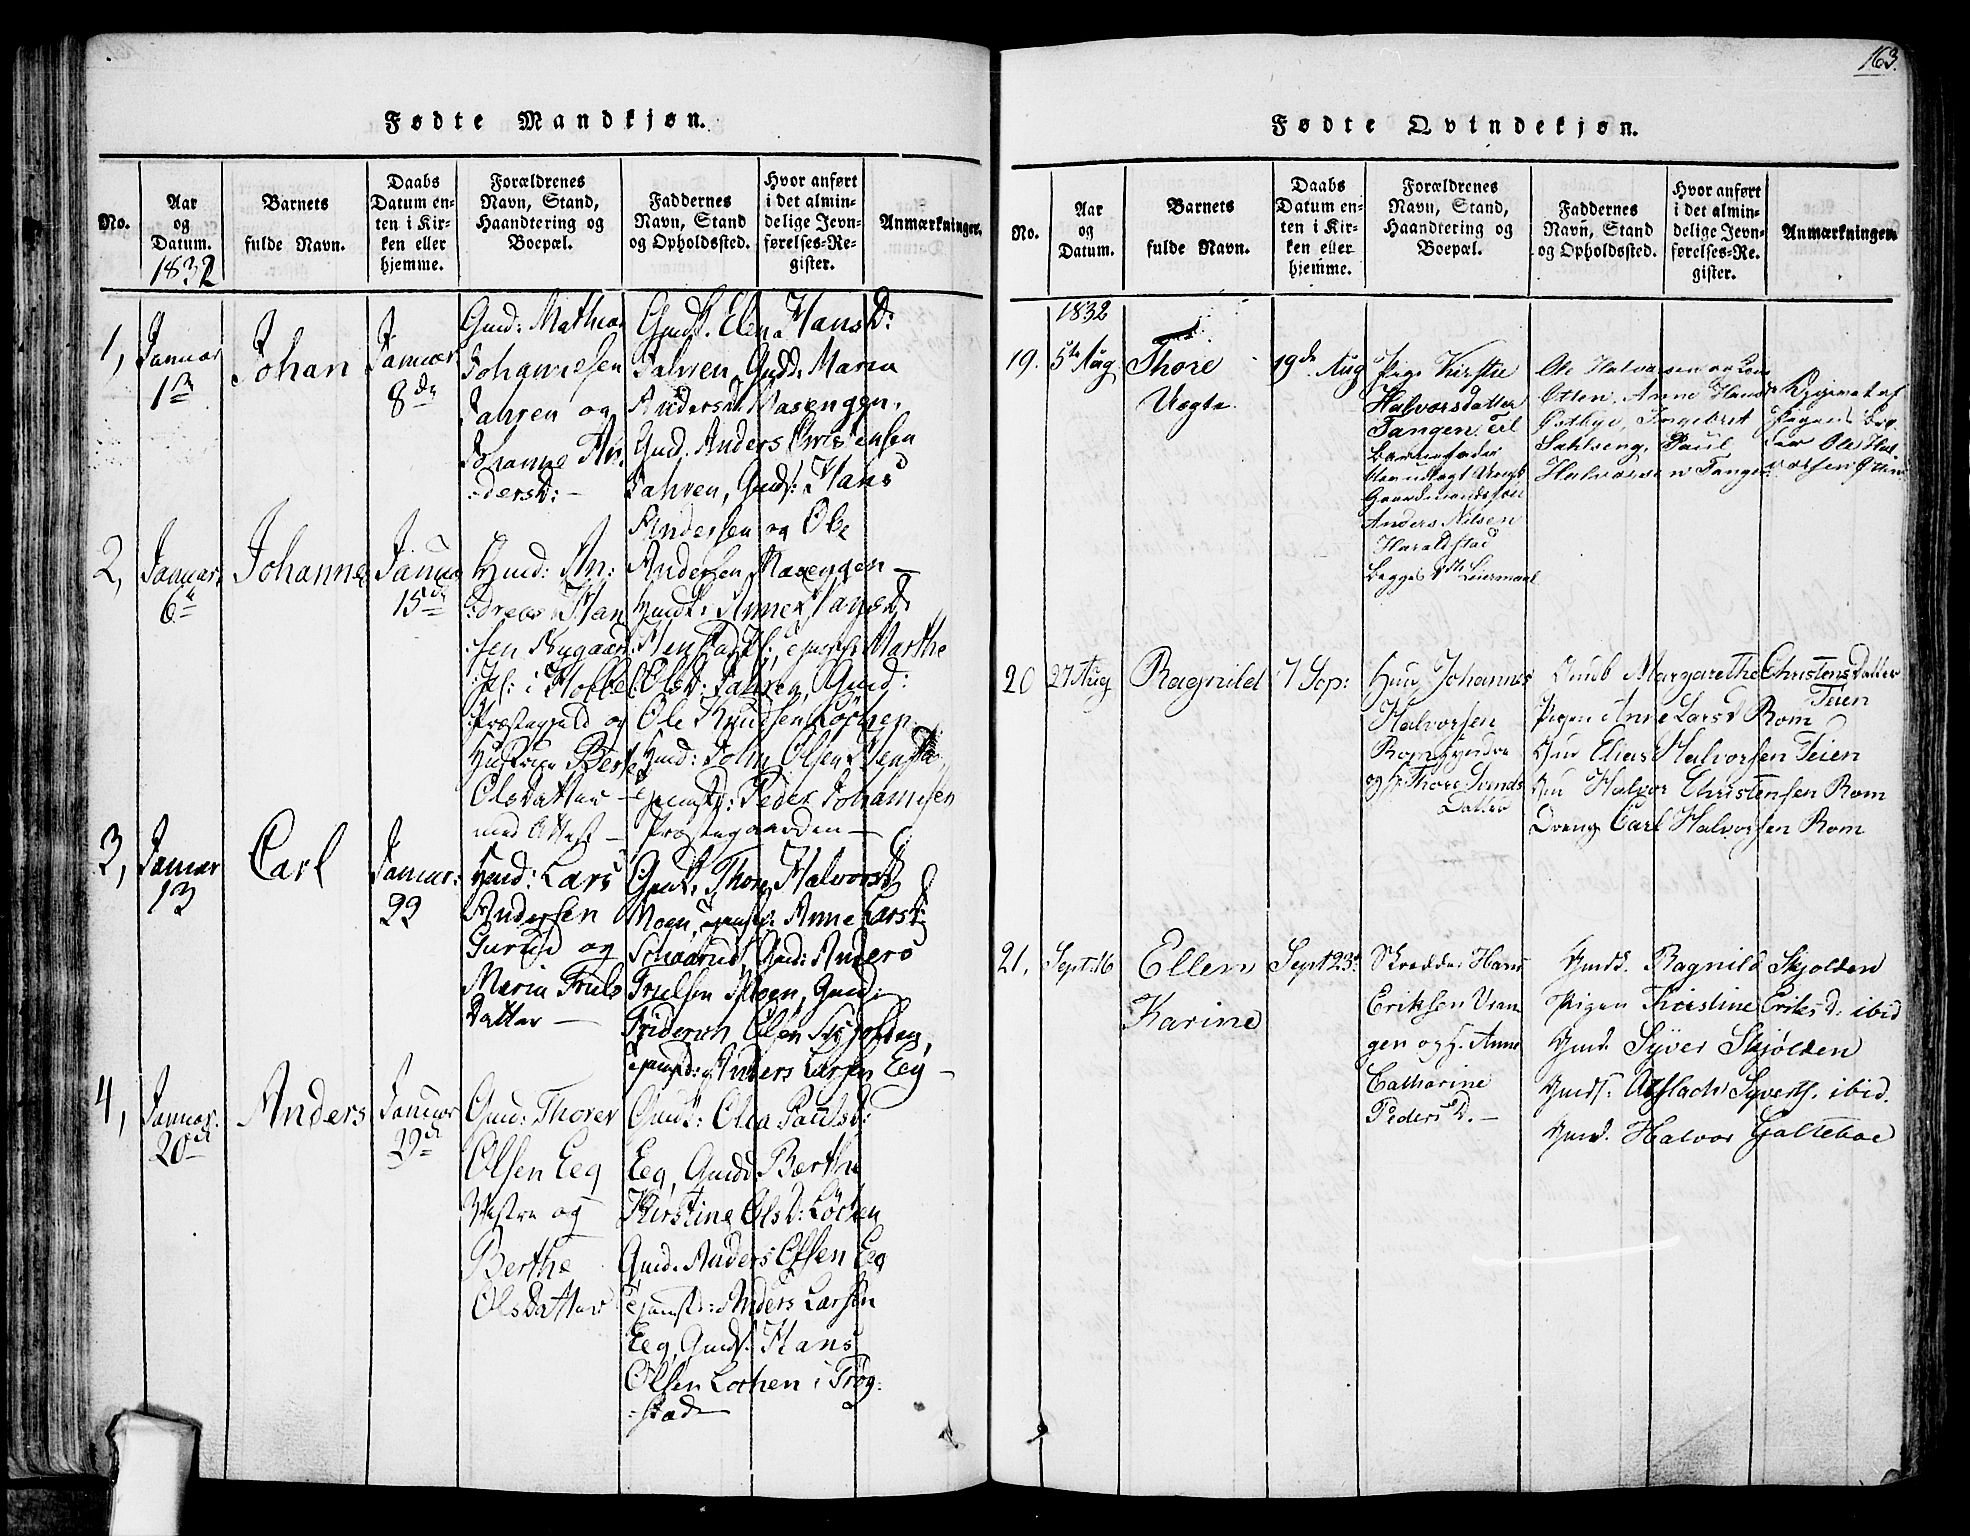 163.
Fødte Mandkjøn.
No.
Aar
og
Datum.
1832
Barnets
fulde Navn.
Daabs
Datum en-
ten i Kir-
ken eller
hjemme.
Forældrenes
Navn, Stand,
Haandtering og
Boepæl.
Faddernes
Navn, Stand
og Opholdssted.
Hvor anført
i det almin-
delige Jevn-
førelses-Re-
gister.
Anmærkninger.
1,
Januar
1
Johan
Januar
8de
Gmd: Mathias
Johannesen
Sahren og
Johanne An
dersd: -
Gmdk. Elen Hansd:
Sahren, Gmdd. Maria
Andersd.
Gmd. Anders Christensen
Sahren, Gmds: Hans
Andersen og Ole
Andersen
2,
Januar
6te
Johannes
Januar
15de
Hmd: An:
dreas Han
sen
i Hobbel
Præstegjeld og
Hustrue Berte
Olsdatter -
med Attest -
Hmdk: Anne Hansd:
Marthe
Olsd: Sahren, Gmd:
Ole Knudsen Lochen
Hmd: John Olsen
Tjenestd: Peder Johannesen
Præstegaarden -
3,
Januar
13
Carl
Januar:
22
Hmd: Lars
Andersen
og
Maria Truls
Datter -
Gmdk. Thore Halvorsd
Moen, Tjenestp: Anne Larsd:
Gmd: Anders
Trulsen Moen, Gmd:
Friderich Olsen Skjolden,
Tjenestd: Anders Larsen Eeg -
4,
Januar.
20de
Anders
Januar
29de
Gmd: Thorer
Olsen Eeg
Vestre og
Berthe
Olsdatter
Gmdk: Olea Paulsd:
Eeg, Gmdd. Berthe
Kirstine Olsd: Lochen
Gmd. Anders Olsen Eeg
Tjenestd: Anders Larsen
Eeg, Gmds. Hans
Olsen Lochen i Trøg
stad
Fødte Qvindekjøn.
No.
Aar
og
Datum.
Barnets
fulde Navn.
Daabs
Datum en-
ten i Kir-
ken eller
hjemme.
Forældrenes
Navn, Stand,
Haandtering og
Boepæl.
Faddernes
Navn, Stand
og Opholdssted.
Hvor anført
i det almin-
delige Jevn-
førelses-Re-
gister.
Anmærkninger.
1832
19.
5te Aug
Thore
Uægte.
19de Aug
Pige Kirstie
Halvorsdatter
Tangen. Til
Barnefader
er udlagt
Gaardmandssøn
Anders Nilsen
Haraldstad
Begges Leiermaal
Ole Halvorsen
Otten, Anne Hans
Ostbye, Ingebret
Sahlseng, Paul
Halvorsen Tangen
af
Pigens
Ole Hal
vorsen Otten
20
27 Aug
Ragnild
7 Sep:
Huus Johannes
Halvorsen
Rom
og h: Thore
Datter
Margarethe Christensdatter
Teien
Pigen Anne Larsd Rom
Elias Halvorsen Teien
Halvor Christensen Rom
Dreng Carl Halvorsen Rom
21.
Sept: 16
Ellen
Karine
Sept 23.
Skredder Hans
Eriksen Vran
gen og h. Anne
Catharine
Peders D. -
Gmdk. Ragnild Skjolden
Pigen Kirstine Eriks D: ibid
Gmd. Syver Skjølden
Gmds: Aslach Syverts. ibid.
Gmd. Halvor Galteboe